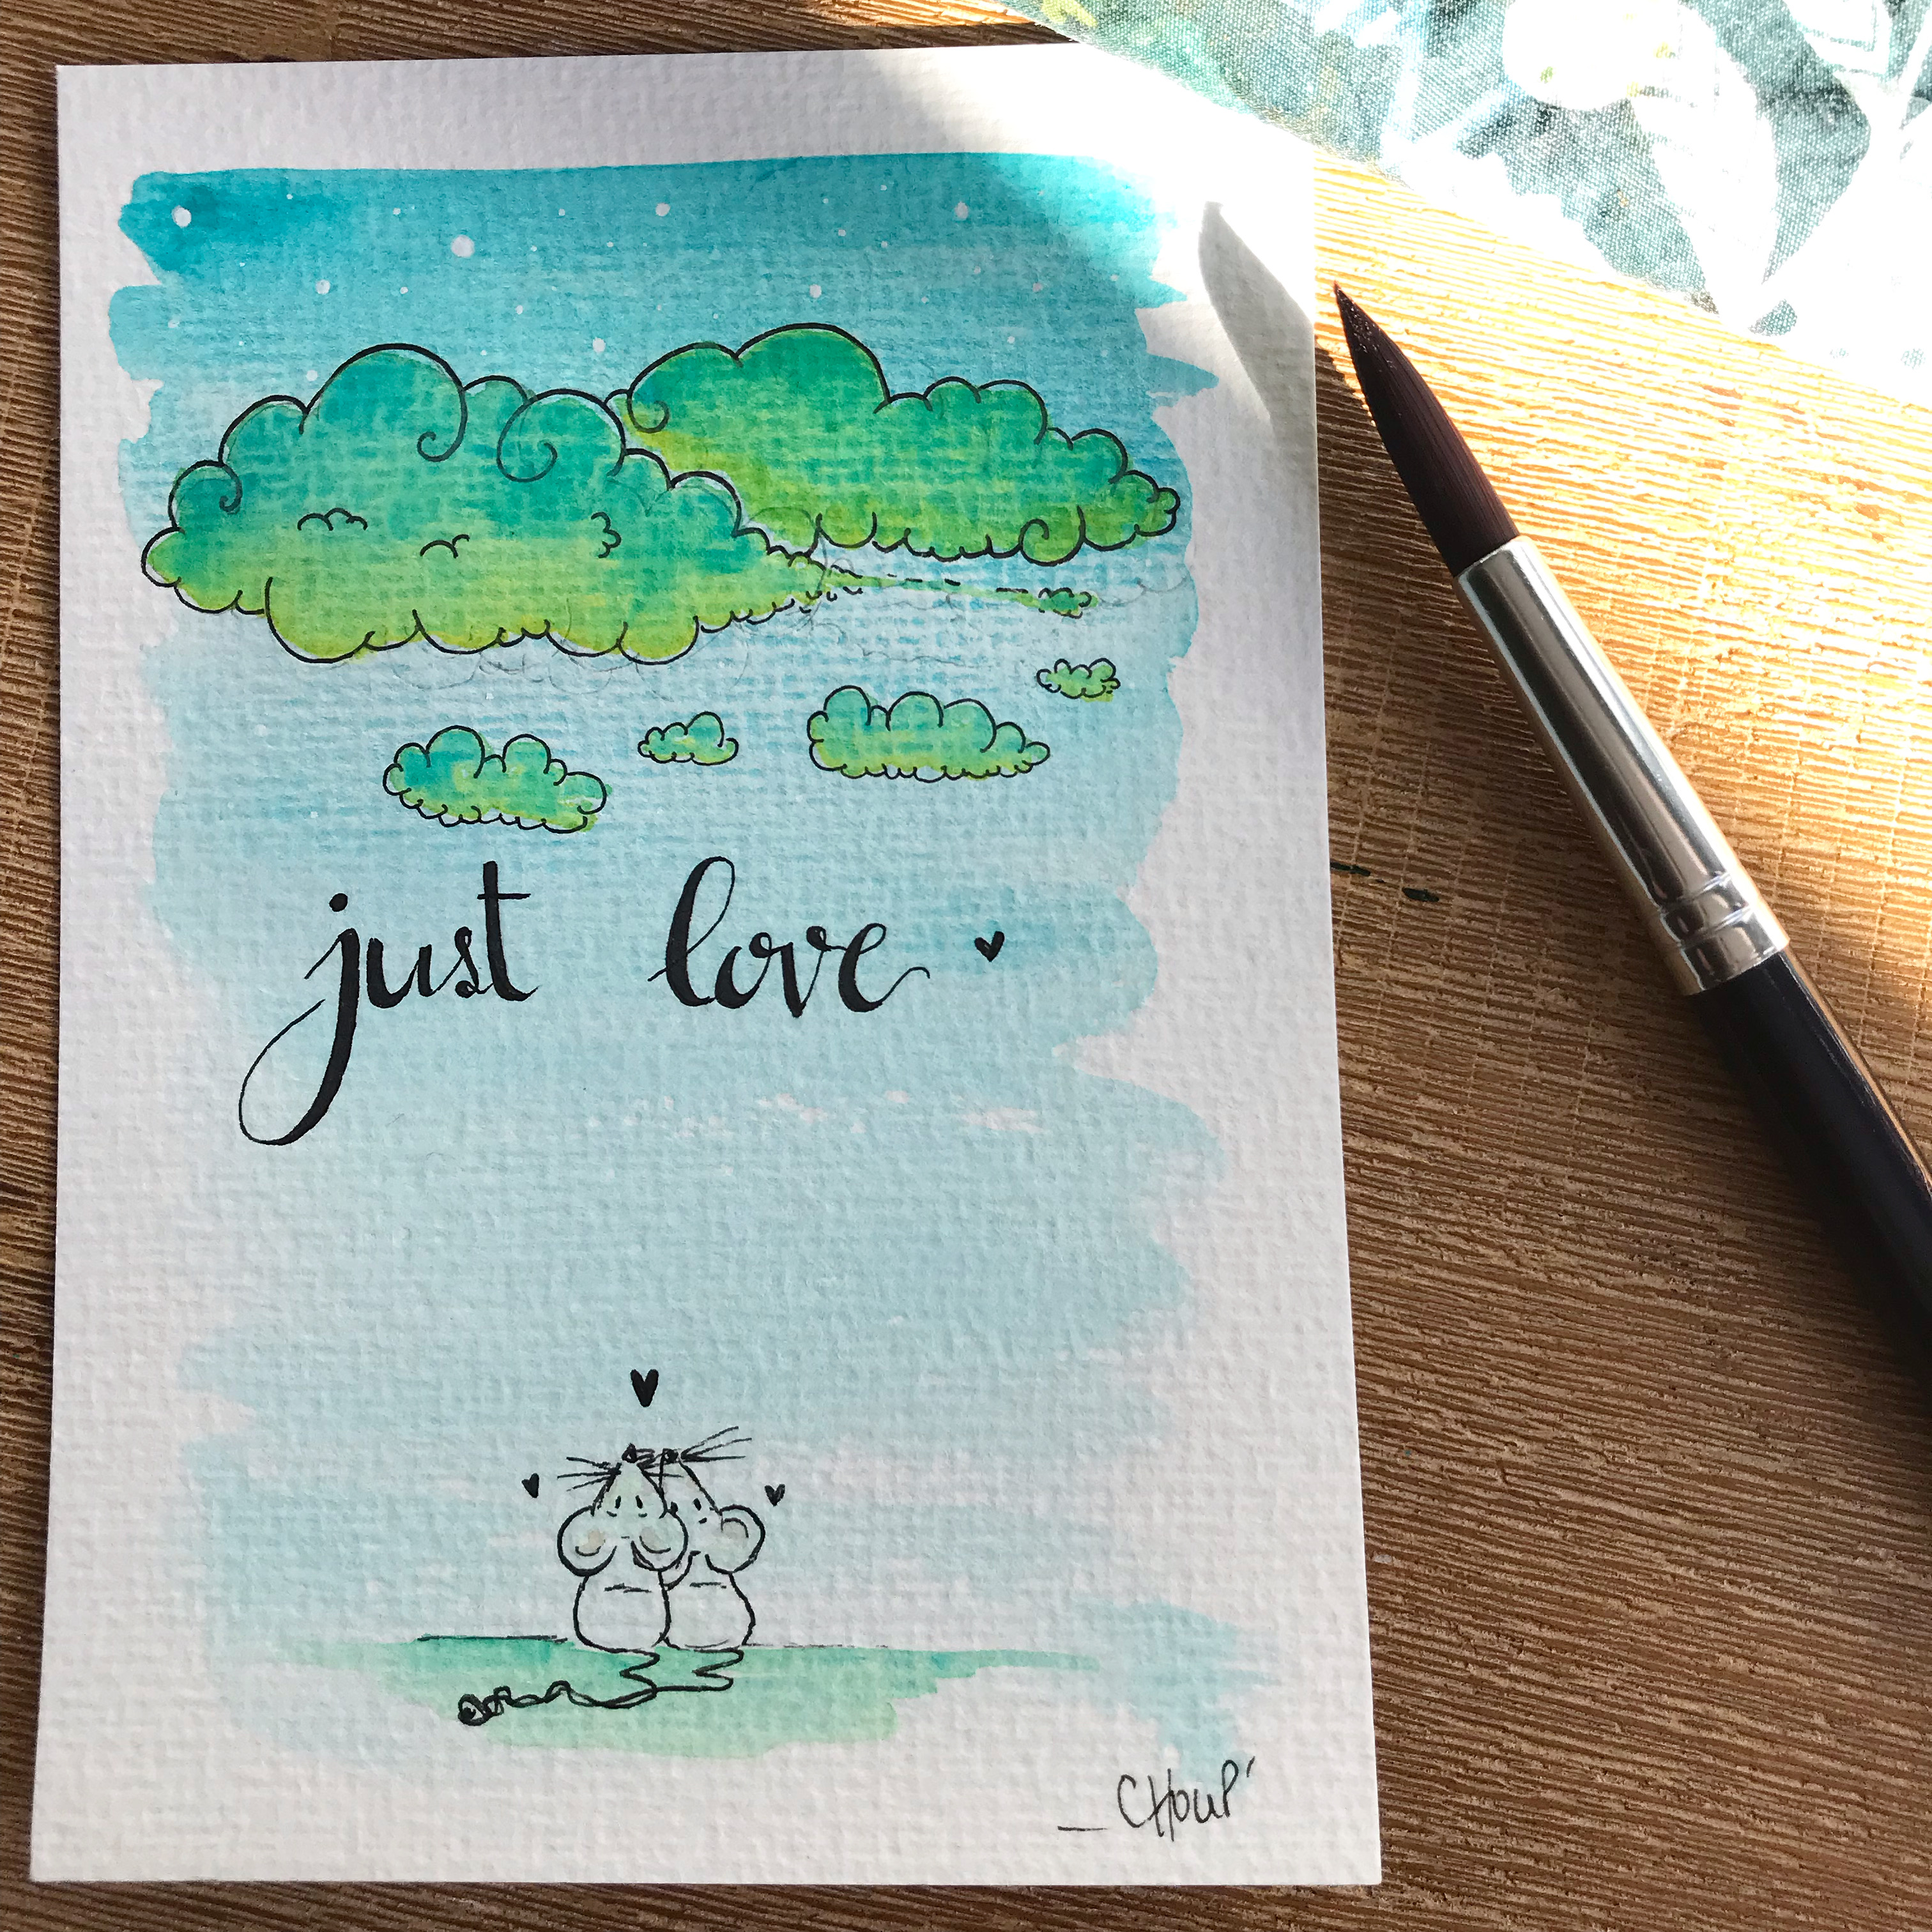 just love
CHOUP'